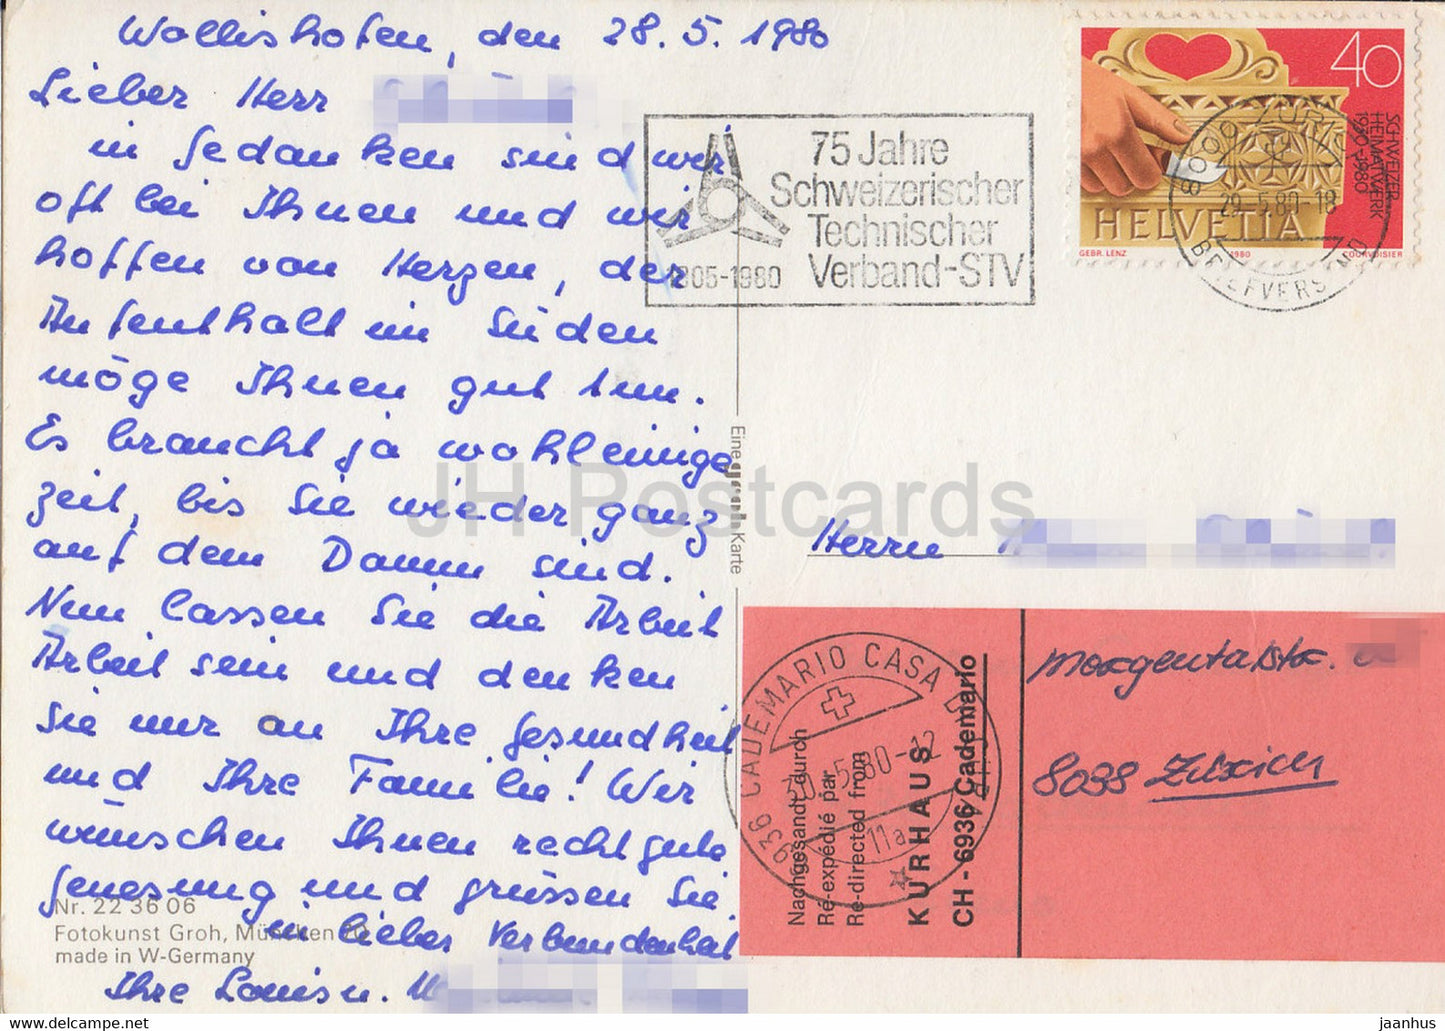 Wollishofen, den 28.5.1980
Lieber Herr
in Gedanken sind wir
oft bei Ihnen und wir
hoffen von Herzen, der
Aufenthalt im Süden
möge Ihnen gut tun.
Es braucht ja wohl einige
Zeit, bis Sie wieder ganz
auf dem Damm sind.
Nun lassen Sie die Arbeit
Arbeit sein und denken
Sie nur an Ihre Gesundheit
und Ihre Familie! Wir
wünschen Ihnen recht gute
Genesung und grüssen Sie.
in lieber Verbundenheit
Ihre Louis u.
Nr. 22 36 06
Fotokunst Groh, München 70
made in W-Germany
Eine Karte
75 Jahre
Schweizerischer
Technischer
Verband-STV
1905-1980
40
SCHWEIZER
HEIMATWERK
1930-1980
HELVETIA
GEBR. LENZ 1980 COURVOISIER
8000 ZÜRICH
29.5.80-18
BRIEFVERSAND
Herrn
Nachgesandt durch
Ré-expédié par
Re-directed from
KURHAUS
CH - 6936 Cademario
6936 CADEMARIO CASA DI
5.80-12
11a
Morgentalstr.
8038 Zürich
JH Postcards
www.delcampe.net
jaanhu